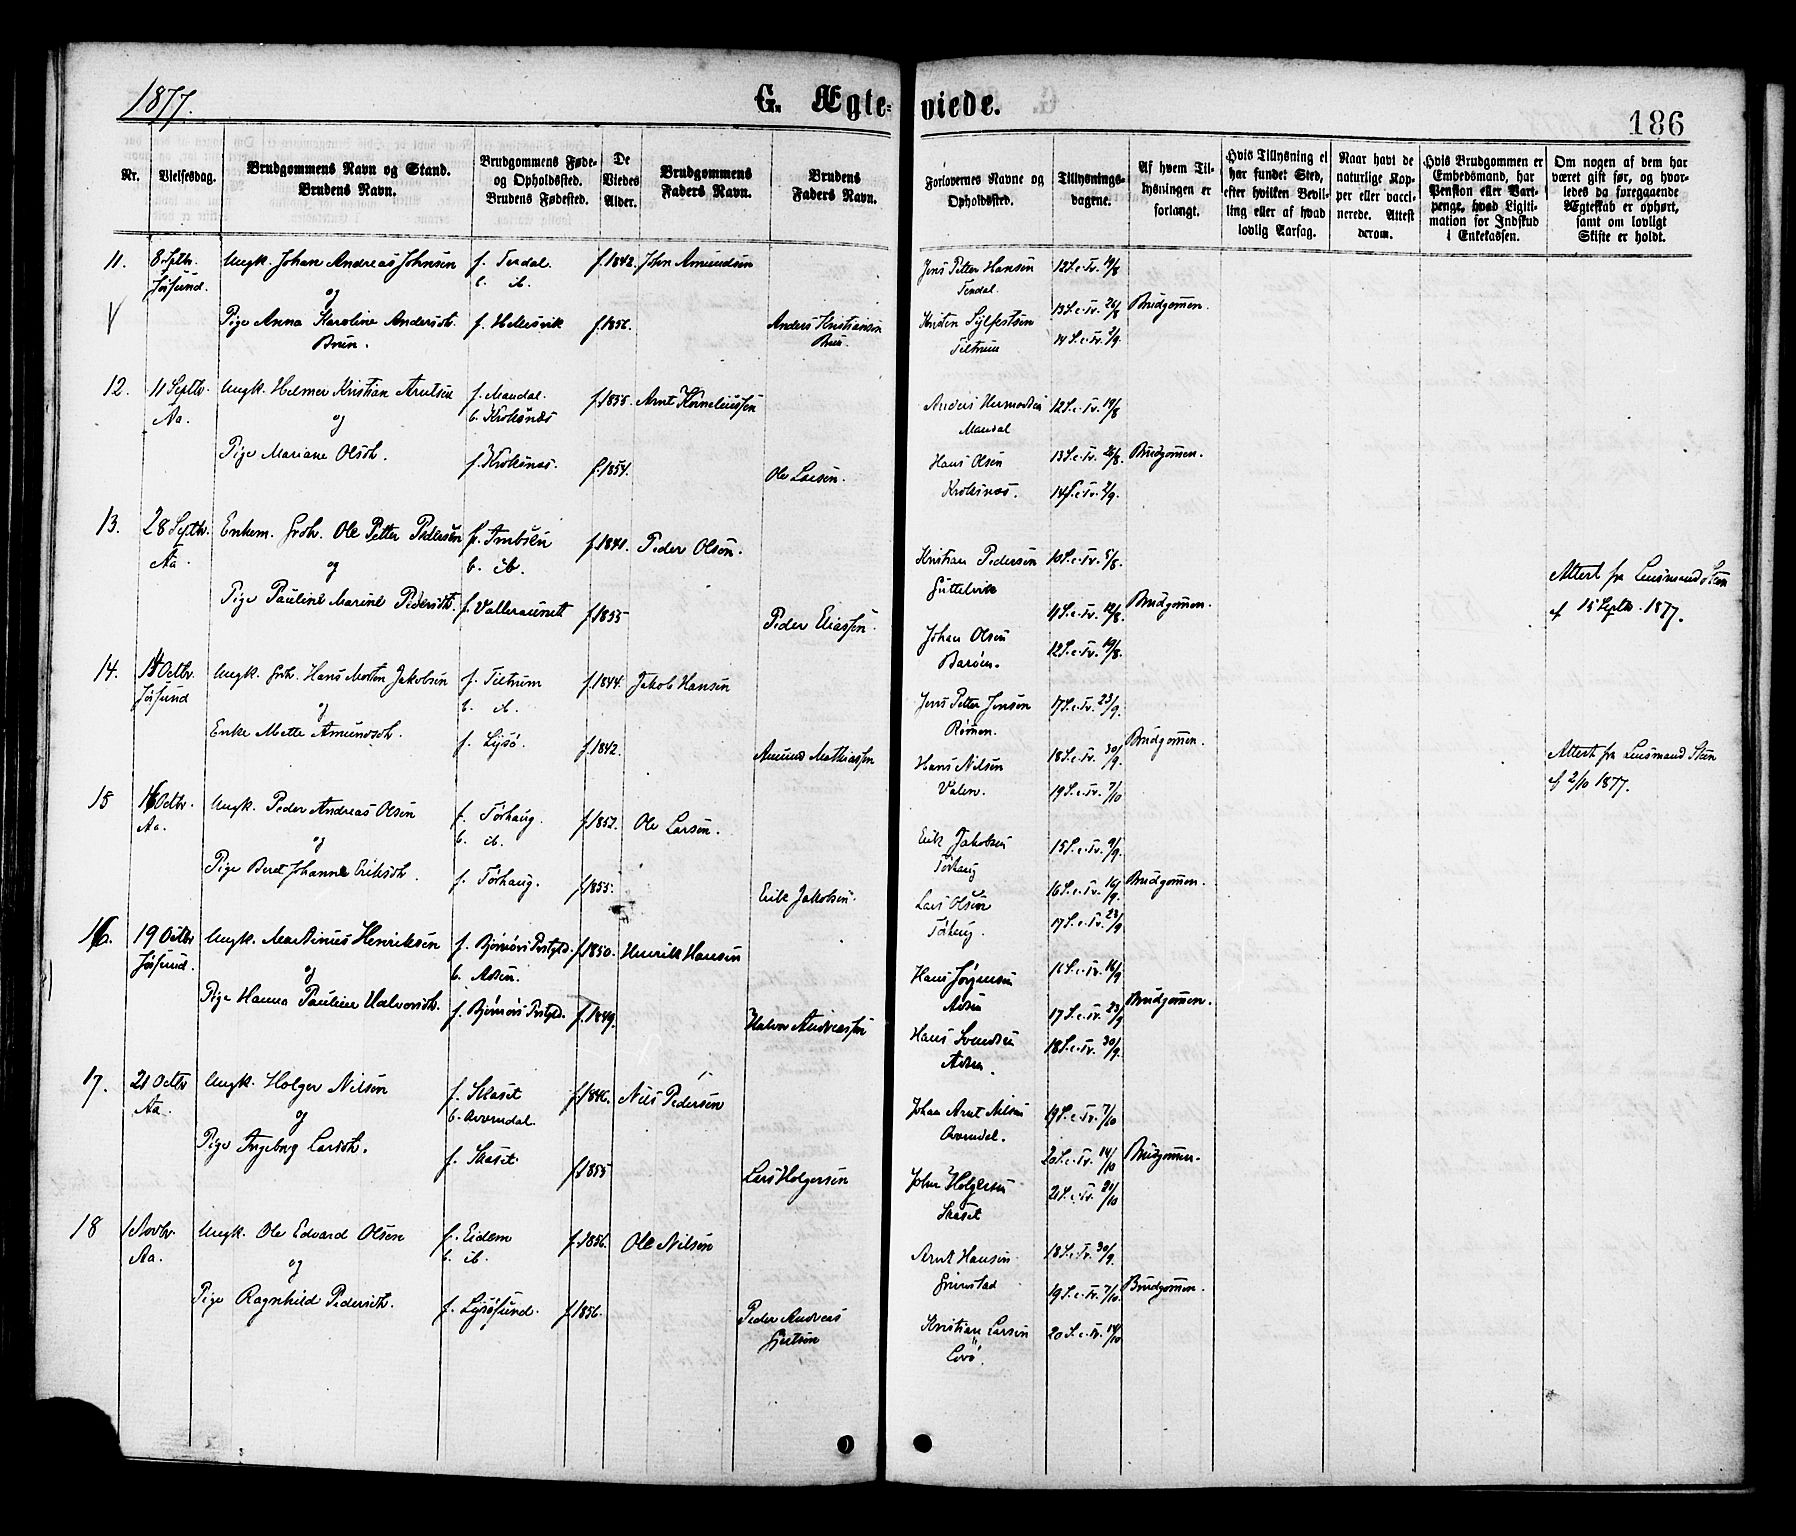 1877.
G. Ægte-viede.
186
Nr.
Vielsesdag.
Brudgommens Navn og Stand.
Brudens Navn.
Brudgommens Føde-
og Opholdssted.
Brudens Fødested.
De
Viedes
Alder.
Brudgommens
Faders Navn.
Brudens
Faders Navn.
Forlovernes Navne og
Opholdssted.
Tillysnings-
dagene.
Af hvem Til-
lysningen er
forlangt.
Hvis Tillysning ei
har fundet Sted,
efter hvilken Bevil-
ling eller af hvad
lovlig Aarsag.
Naar havt de
naturlige Kop-
per eller vacci-
nerede. Attest
derom.
Hvis Brudgommen er
Embedsmand, har
Pension eller Vart-
penge, hvad Ligiti-
mation for Indskud
i Enkekassen.
Om nogen af dem har
været gift før, og hvor-
ledes da foregaaende
Ægteskab er ophørt,
samt om lovligt
Skifte er holdt.
11. 8 Septbr. Ungk. Johan Andreas Johnsen f. Terdal. f. 1842. John Amundsen Jens Petter Hansen 12 S.e.Tr. 19/8
Jøssund. og b. ib. Terdal.
Pige Anna Karoline Andersdt. f. Hellesvik f. 1856. Anders Kristiansen Kristen Sylfestsen 13 S.e.Tr. 26/8 Brudgommen.
Brun. Brun. Tiltrum 14 S.e.Tr. 2/9.
12. 11 Septbr. Ungk. Helmer Kristian Arntsen f. Mandal. f. 1855. Arnt Korneliussen Anders 12 S.e.Tr. 19/8
Aa. og b. Kroksnæs Mandal
Pige Mariane Olsdt. f. Kroksnæs. f. 1854. Ole Larsen. Hans Olsen 13 S.e.Tr. 26/8. Brudgommen.
Kroksnæs. 14 S.e.Tr. 2/9.
13. 28 Septbr. Enkem. Ole Petter Pedersen f. f. 1841. Peder Olsen. Kristian Pedersen 10 S.e.Tr. 5/8. Attest fra Lensmand Steen
Aa. og b. ib. af 15 Septbr. 1877.
Pige Pauline Marine Pedersdt. f. Valleraunet f. 1855 Peder Eliassen. 11 S.e.Tr. 12/8. Brudgommen.
Johan Olsen 12 S.e.Tr. 19/8.
14. Octbr. Ungk. Hans Morten Jakobsen f. Tiltrum f. 1844. Jakob Hansen Jens Petter Jensen 17 S.e.Tr. 23/9.
Jøssund og b. ib.
Enke Mette Amundsdt. f. Lysø. f. 1842. Amund Mathiassen Hans Nilsen 18 S.e.Tr. 30/9. Brudgommen. Attest fra Lensmand Steen
Valen. 19 S.e.Tr. 7/10 af 2/10 1877.
15 16 Octbr. Ungk. Peder Andreas Olsen f. Tørhaug. f. 1852. Ole Larsen. Erik Jakobsen 15 S.e.Tr. 9/9.
Aa. og b. ib. Tørhaug
Pige Beret Johanne Eriksdt. f. Tørhaug. f. 1855. Erik Jakobsen. Lars Olsen 16 S.e.Tr. 16/9. Brudgommen.
Tørhaug. 17 S.e.Tr. 23/9
16. 19 Octbr Ungk. Martinus Henriksen f. Bjørnørs Prstgld. f. 1850. Henrik Hansen Hans Jørgensen 16 S.e.Tr. 16/9
Jøssund. og b. Adsen. Adsen
Pige Hanna Pauline Halvorsdt. f. Bjørnørs Prstgld. f. 1849. Halvor Andreassen 17 S.e.Tr. 23/9 Brudgommen.
Hans Svendsen 18 S.e.Tr. 30/9.
Adsen.
17. 21 Octbr Ungk. Holger Nilsen f. Skaset f. 1846. Nils Pedersen Johan Arnt Nilsen 19 S.e.Tr. 7/10
Aa. og b. Averndal.
Pige Ingeborg Larsdt. f. Skaset f. 1855 Lars Holgersen 20 S.e.Tr. 14/10 Brudgommen.
John Holgersen 21 S.e.Tr. 21/10
Skaset
18 1 Novbr. Ungk. Ole Edvard Olsen f. Eidem f. 1856. Ole Nilsen Arnt Hansen 18 S.e.Tr. 30/9.
Aa. og b. ib. Grinestad
Pige Ragnhild Pedersdt. f. Lysøsund. f. 1856. Peder Andreas 19 S.e.Tr. 7/10. Brudgommen.
Kristian Larsen 20 S.e.Tr. 14/10